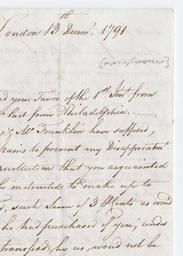 London 13 Decemr. 1791.
th
your Favor of the 1st Inst from
last from Philadelphia.
& Mr Franklin have suffered,
to prevent my Disappointmt
recollection that you acquainted
be instructed to make up to
such Sum of 3 as wou
he had purchased of you; under
transfers, by us, would not be